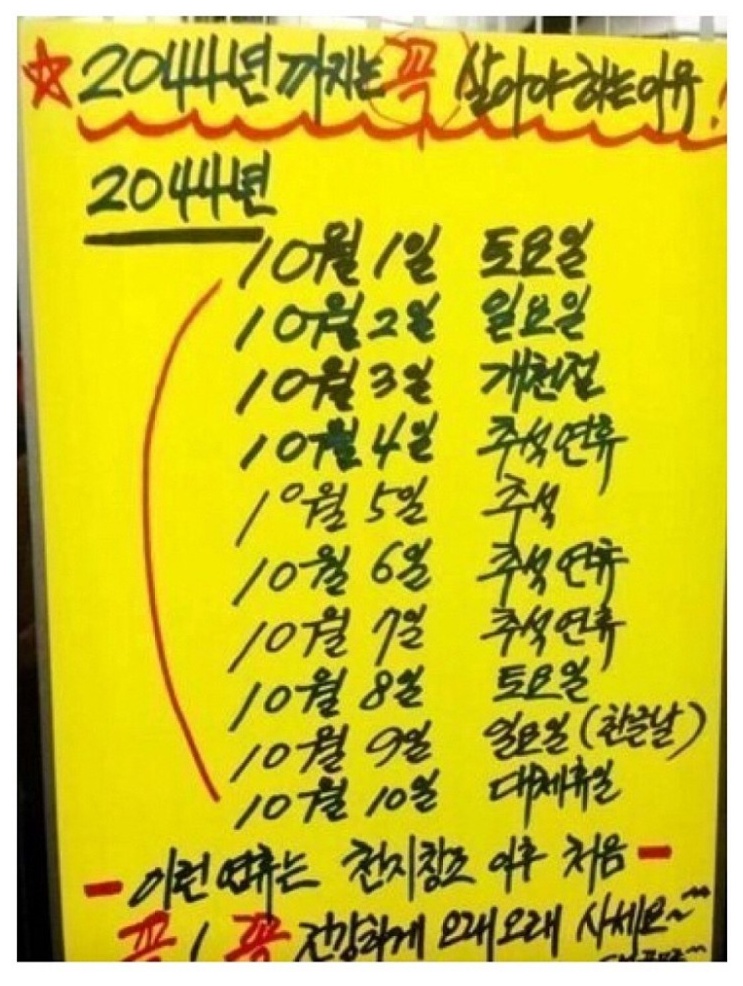 ☆ 2044년까지는 꼭 살아야 하는 이유!
2044년
10월 1일 토요일
10월 2일 일요일
10월 3일 개천절
10월 4일 추석연휴
10월 5일 추석
10월 6일 추석연휴
10월 7일 추석연휴
10월 8일 토요일
10월 9일 일요일 (한글날)
10월 10일 대체휴일
- 이런 연휴는 천지창조 이후 처음 -
꼭! 꼭 건강하게 오래오래 사세요~